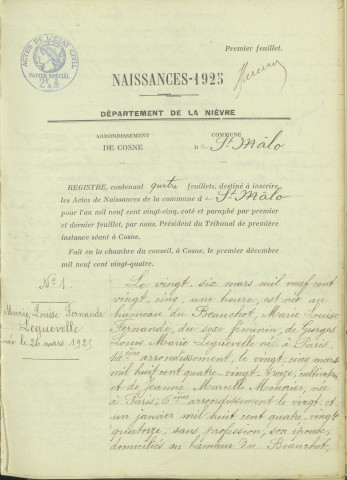 Premier feuillet.
ACTES DE L'ETAT CIVIL
PAPIER SPECIAL
NAISSANCES-1925
DÉPARTEMENT DE LA NIÈVRE
ARRONDISSEMENT
DE COSNE
COMMUNE
D e St Mâlo
REGISTRE, contenant quatre feuillets, destiné à inscrire
les Actes de Naissances de la commune d e St Mâlo
pour l'an mil neuf cent vingt-cinq, coté et paraphé par premier
et dernier feuillet, par nous, Président du Tribunal de première
instance séant à Cosne.
Fait en la chambre du conseil, à Cosne, le premier décembre
mil neuf cent vingt-quatre.
No 1.
Marie Louise Fernande
Lequevelle
née le 26 mars 1925
Le vingt six mars mil neuf cent
vingt cinq, une heure, est née au
hameau du Branchot, Marie Louise
Fernande, du sexe féminin, de Georges
Louis Marie Lequevelle né à Paris,
14ème arrondissement, le vingt cinq mars
mil huit cent quatre-vingt treize, cultivateur
et de Jeanne Marcelle Monnier, née
à Paris 6ème arrondissement le vingt et
un janvier mil huit cent quatre-vingt
quatorze, sans profession, son épouse
domiciliés au hameau du Branchot.